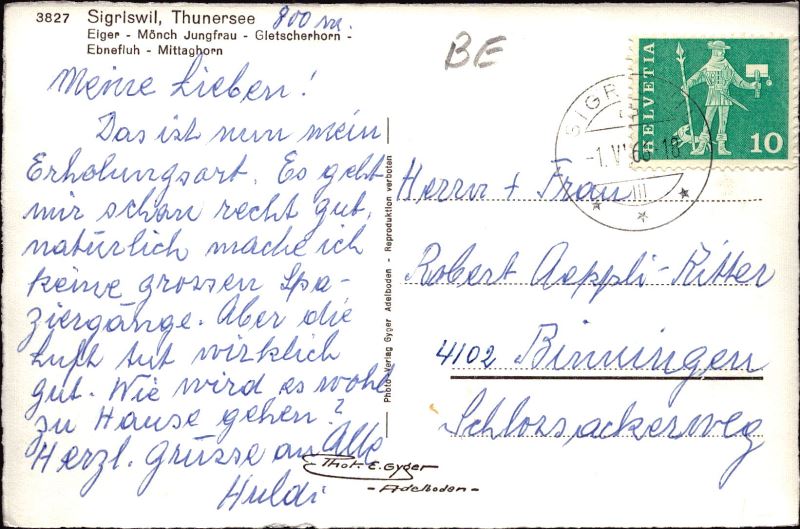 3827 Sigriswil, Thunersee 800 m.
Eiger - Mönch Jungfrau - Gletscherhorn -
Ebnefluh - Mittaghorn
BE
HELVETIA
10
Meine Lieben!
Das ist nun mein
Erholungsort. Es geht
mir schon recht gut,
natürlich mache ich
keine grossen Spa-
ziergänge. Aber die
Luft tut wirklich
gut. Wie wird es wohl
zu Hause gehen?
Herzl. Grüsse an Alle
Huldi
Photo-Verlag Gyger Adelboden - Reproduktion verboten
Phot. E. Gyger
- Adelboden -
Herrn + Frau
Robert Aeppli-Ritter
4102 Binningen
Schlossackerweg